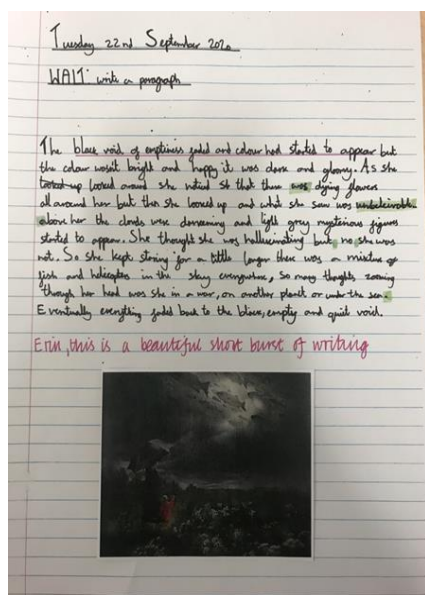 Tuesday 22nd September 2020
WALT: write a paragraph
The black void of emptiness faded and colour had started to appear but
the colour wasn't bright and happy it was dark and gloomy. As she
looked up looked around she noticed that there was dying flowers
all around her but then she looked up and what she saw was unbeleivable
above her the clouds were darkening and light grey mysterious figures
started to appear. She thought she was hallucinating but no she was
not. So she kept staring for a little longer there was a mixture of
fish and helicopters in the sky everywhere, so many thoughts zooming
through her head was she in a war, on another planet or under the sea.
Eventually everything faded back to the black, empty and quiet void.
Erin, this is a beautiful short burst of writing